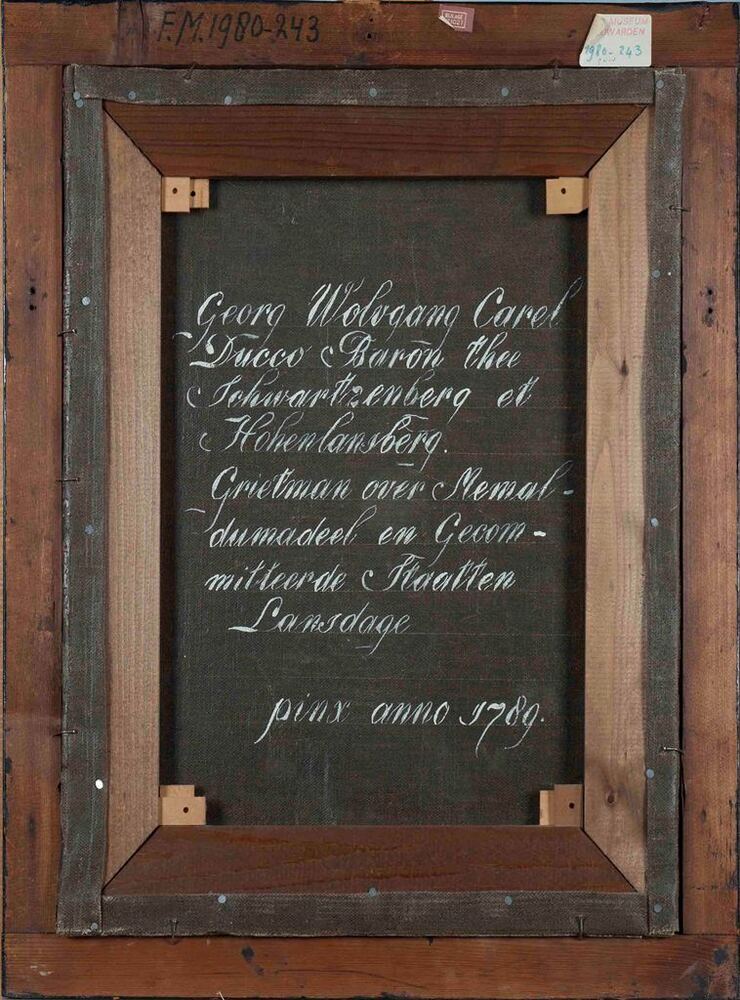 F.M. 1980-243
MUSEUM
WARDEN
1980-243
Georg Wolvgang Carel
Ducco Baron thee
Schwartzenberg et
Hohenlansberg.
Grietman over Memal-
dumadeel en Gecom-
mitteerde Staatten
Lansdage
pinx anno 1789.